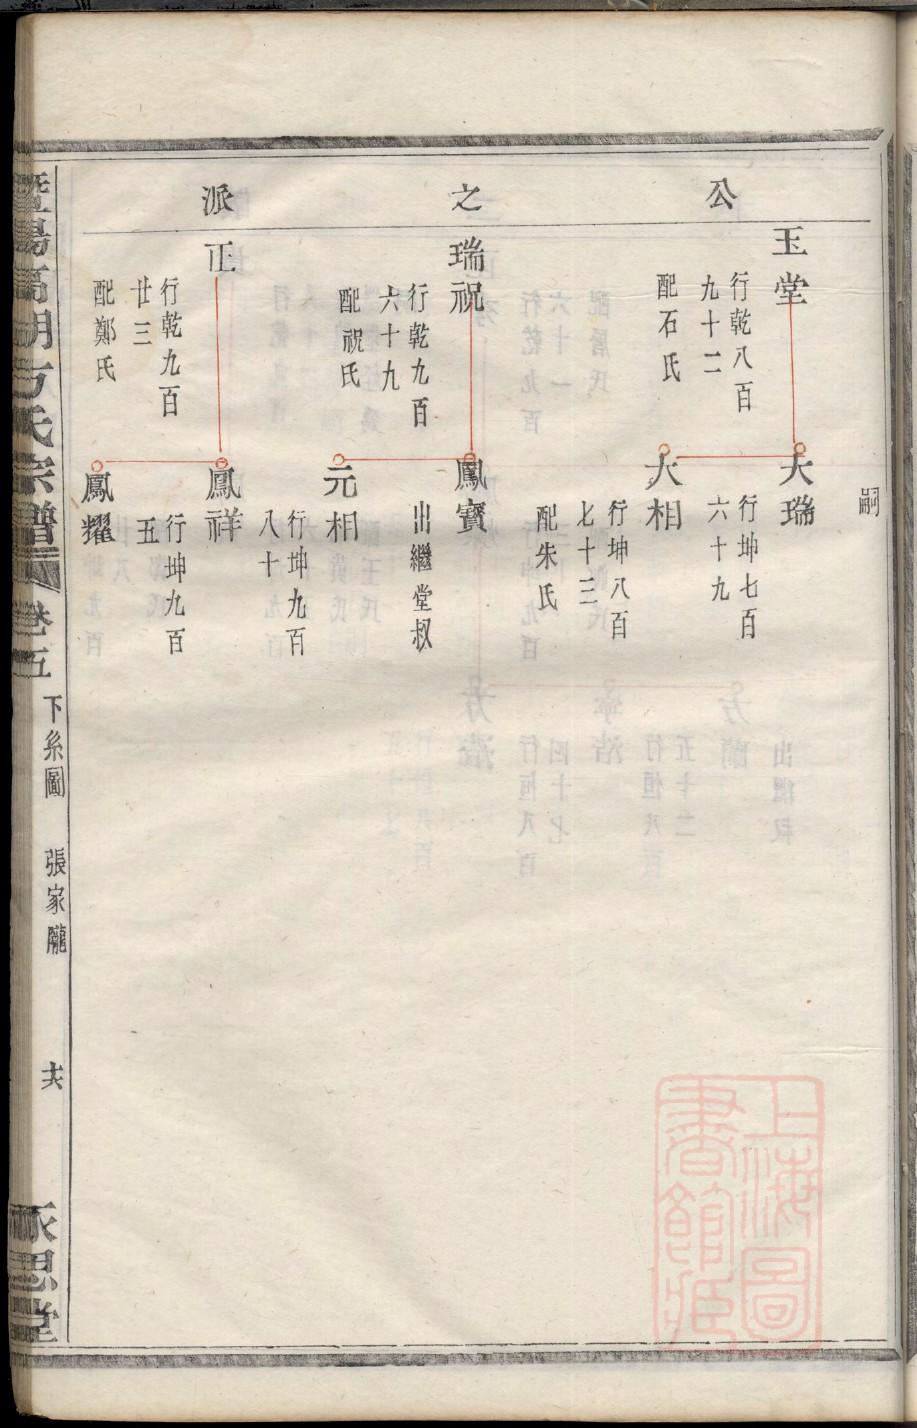 公之派
嗣
玉堂
行乾八百
九十二
配石氏
大瑞
行坤七百
六十九
大相
行坤八百
七十三
配朱氏
瑞祝
行乾九百
六十九
配祝氏
鳳寶
出繼堂叔
元相
行坤九百
八十
正
行乾九百
廿三
配鄭氏
鳳祥
行坤九百
五
鳳耀
暨陽高湖方氏宗譜 卷五 下糸圖 張家隴 十六 永思堂
上海圖
書館藏